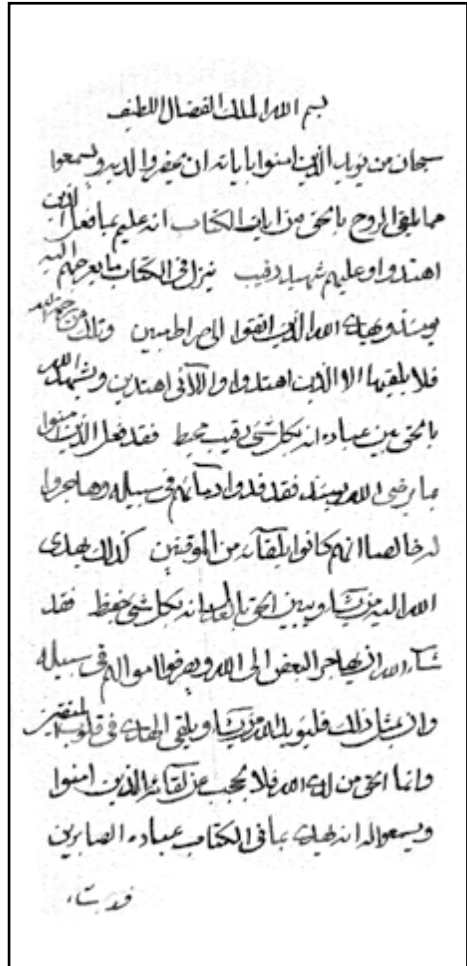 بسم الله الملك الفضال اللطيف
سبحان من يؤيد الذين امنوا باياته ان يحضروا لديه ويسمعوا
مما يلقى الروح بالحق من ايات الكتاب انه عليم بما فعل الذين
اهتدوا وعليهم شهيد رقيب ينزل فى الكتاب ما يعرجهم اليه
ويهدى الله الذين اتقوا الى صراط مبين وتلك من حجة الله
فلا يلقيها الا الذين اهتدوا واللاتى اهتدين ويشهد الله
بالحق بين عباده انه بكل شئ رقيب محيط فقد فعل الذين امنوا
ما رضى الله به فقد فدوا فى سبيله وهاجروا
له خالصا انهم كانوا بلقائه من الموقنين كذلك يهدى
الله اليه من يشاء ويبين الحق انه بكل شئ حفيظ فقد
شاء الله ان يهاجر البعض الى الله ويصرفوا اموالهم فى سبيله
وان بمثل ذلك فليؤيد الله من يشاء ويلقى الهدى فى قلوب
وانما الحق من لدى الله فلا يحجب عن لقائه الذين امنوا
ويسمعوا له انه يهدى بما فى الكتاب عباده الصابرين